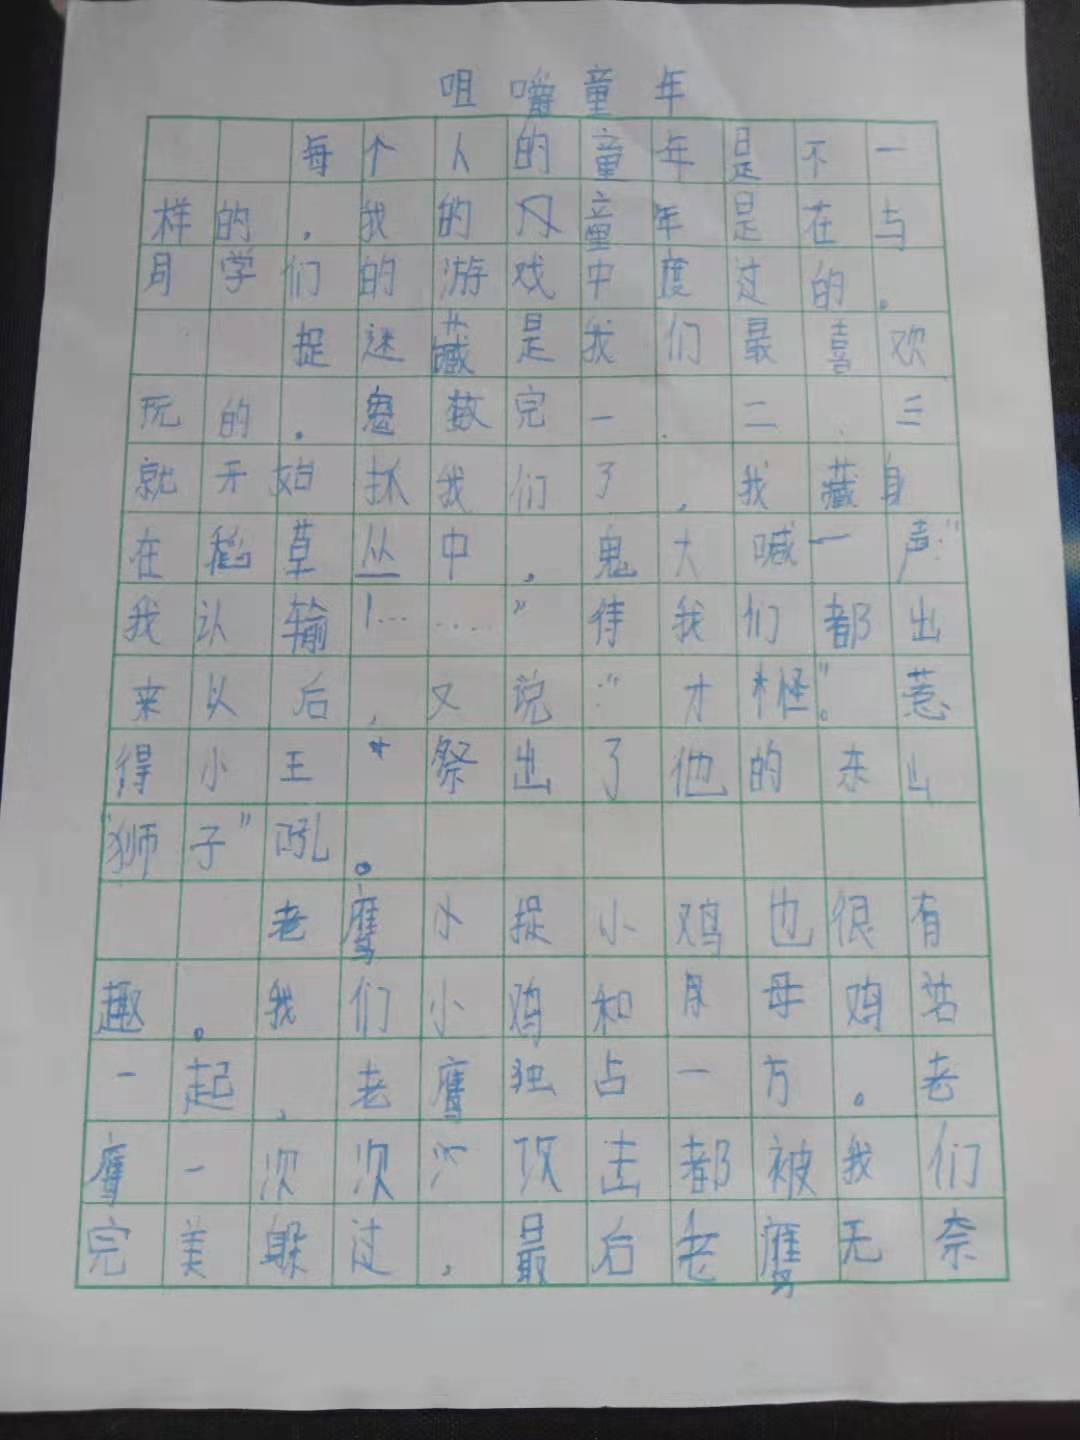 咀嚼童年
每个人的童年是不一
样的，我的童年是在与
同学们的游戏中度过的。
捉迷藏是我们最喜欢
玩的。鬼数完一、二、三
就开始抓我们了，我藏身
在稻草丛中，鬼大喊一声：“
我认输！……”待我们都出
来以后，又说：“才怪”。惹
得小王祭出了他的东山
“狮子”吼。
老鹰小捉小鸡也很有
趣。我们小鸡和母鸡站
一起，老鹰独占一方。老
鹰一次次攻击都被我们
完美躲过，最后老鹰无奈